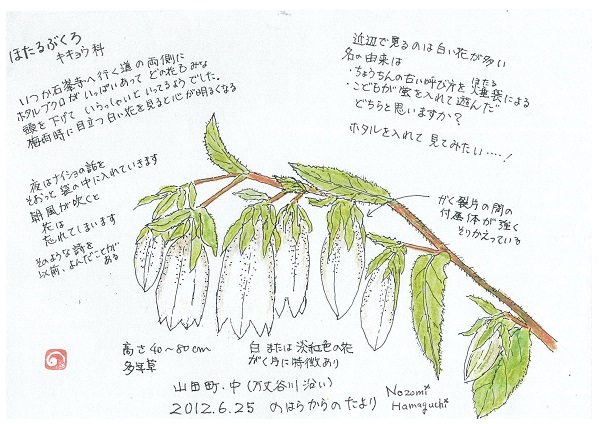 ほたるぶくろ
キキョウ科
いつか石峯寺へ行く道の両側に
ホタルブクロがいっぱいあって どの花もみな
頭を下げて いらっしゃいと いってるようでした。
梅雨時に目立つ白い花を見ると心が明るくなる
夜はナイショの話を
そおっと袋の中に入れていきます
朝風が吹くと
花は
忘れてしまいます
そのような詩を
以前、よんだことがある
近辺で見るのは白い花が多い
名の由来は
・ちょうちんの古い呼び方を 火垂袋による
ほたる
・こどもが蛍を入れて遊んだ
どちらと思いますか?
ホタルを入れて 見てみたい……!
がく裂片の間の
付属体が強く
そりかえっている
高さ40~80cm
多年草
白または淡紅色の花
がく片に特徴あり
山田町・中(丈谷川沿い)
2012.6.25 のはらからのたより
Nozomi
Hamaguchi